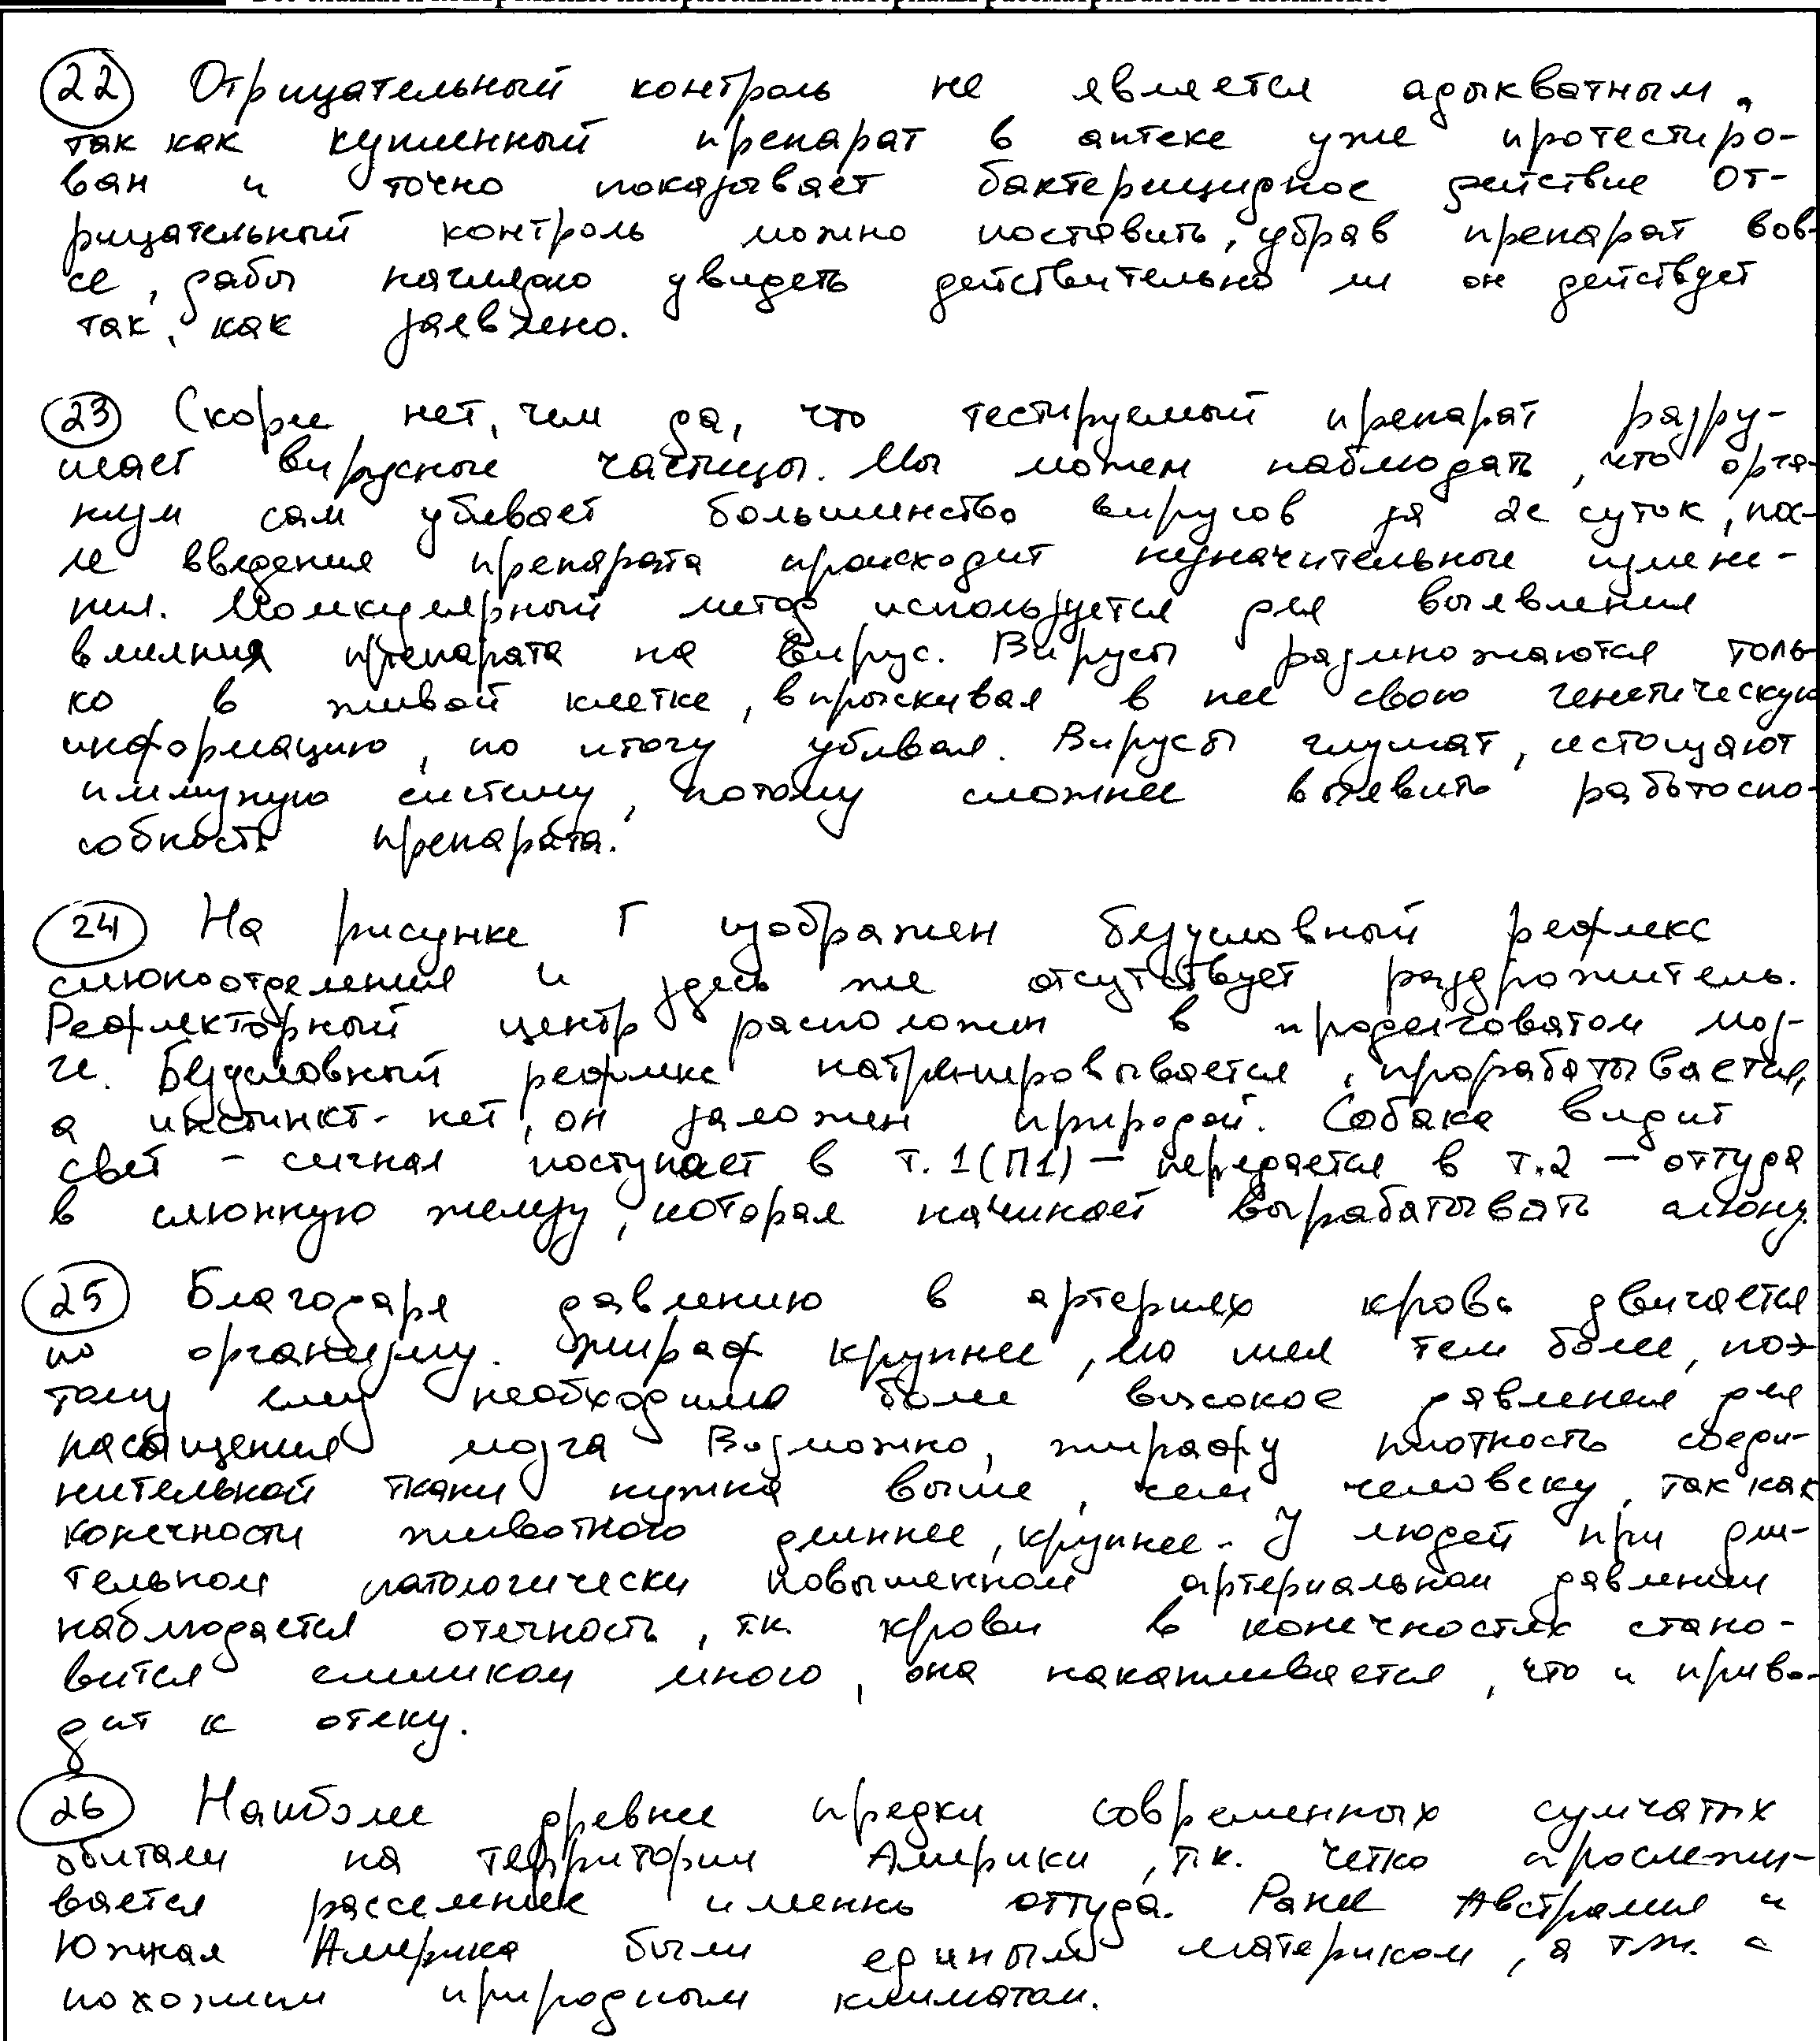 22 Отрицательный контроль не является адыкватным,
так как купленный препарат в аптеке уже протестиро-
ван и точно показывает бактерицидное действие От-
рицательный контроль можно поставить, убрав препарат вов-
се, дабы наглядно увидеть действительно ли он действует
так, как заявлено.
23 Скорее нет, чем да, что тестируемый препарат разру-
шает вирусные частицы. Мы можем наблюдать, что орга-
низм сам убивает большинство вирусов за 2е суток, пос-
ле введения препарата происходит незначительное измене-
ния. Молекулярный метод используется для выявления
влияния препарата на вирус. Вирусы размножаются толь-
ко в живой клетке, впрыскивая в нее свою генетическую
информацию, по итогу убивая. Вирусы глушат, истощают
иммуную систему, потому сложнее выявить работоспо-
собность препарата.
24 На рисунке Г изображен безусловный рефлекс
слюноотделения и здесь же отсутствует раздрожитель.
Рефлекторный центр расположен в продолговатом моз-
ге. Безусловный рефлекс натренировывается, прорабатывается,
а инстинкт - нет, он заложен природой. Собака видит
свет - сигнал поступает в т.1(П1) — передается в т.2 — оттуда
в слюнную железу, которая начинает вырабатывать слюну.
25 Благодаря давлению в артериях кровь двигается
по организму. Жираф крупнее, его шея тем более, поэ-
тому ему необходимо более высокое давления для
насыщения мозга Возможно, жирафу плотность соеди-
нительной ткани нужна выше, чем человеку, так как
конечности животного длиннее, крупнее. У людей при дли-
тельном патологически повышенном артериальном давлении
наблюдается отечность, т.к. крови в конечностях стано-
вится слишком много, она накапливается, что и приво-
дит к отеку.
26 Наиболее древнее предки современных сумчатых
обитали на территории Америки, т.к. четко прослежи-
вается расселение именно оттуда. Ранее Австралия и
Южная Америка были единым материком, а т.ж. с
похожим природным климатом.